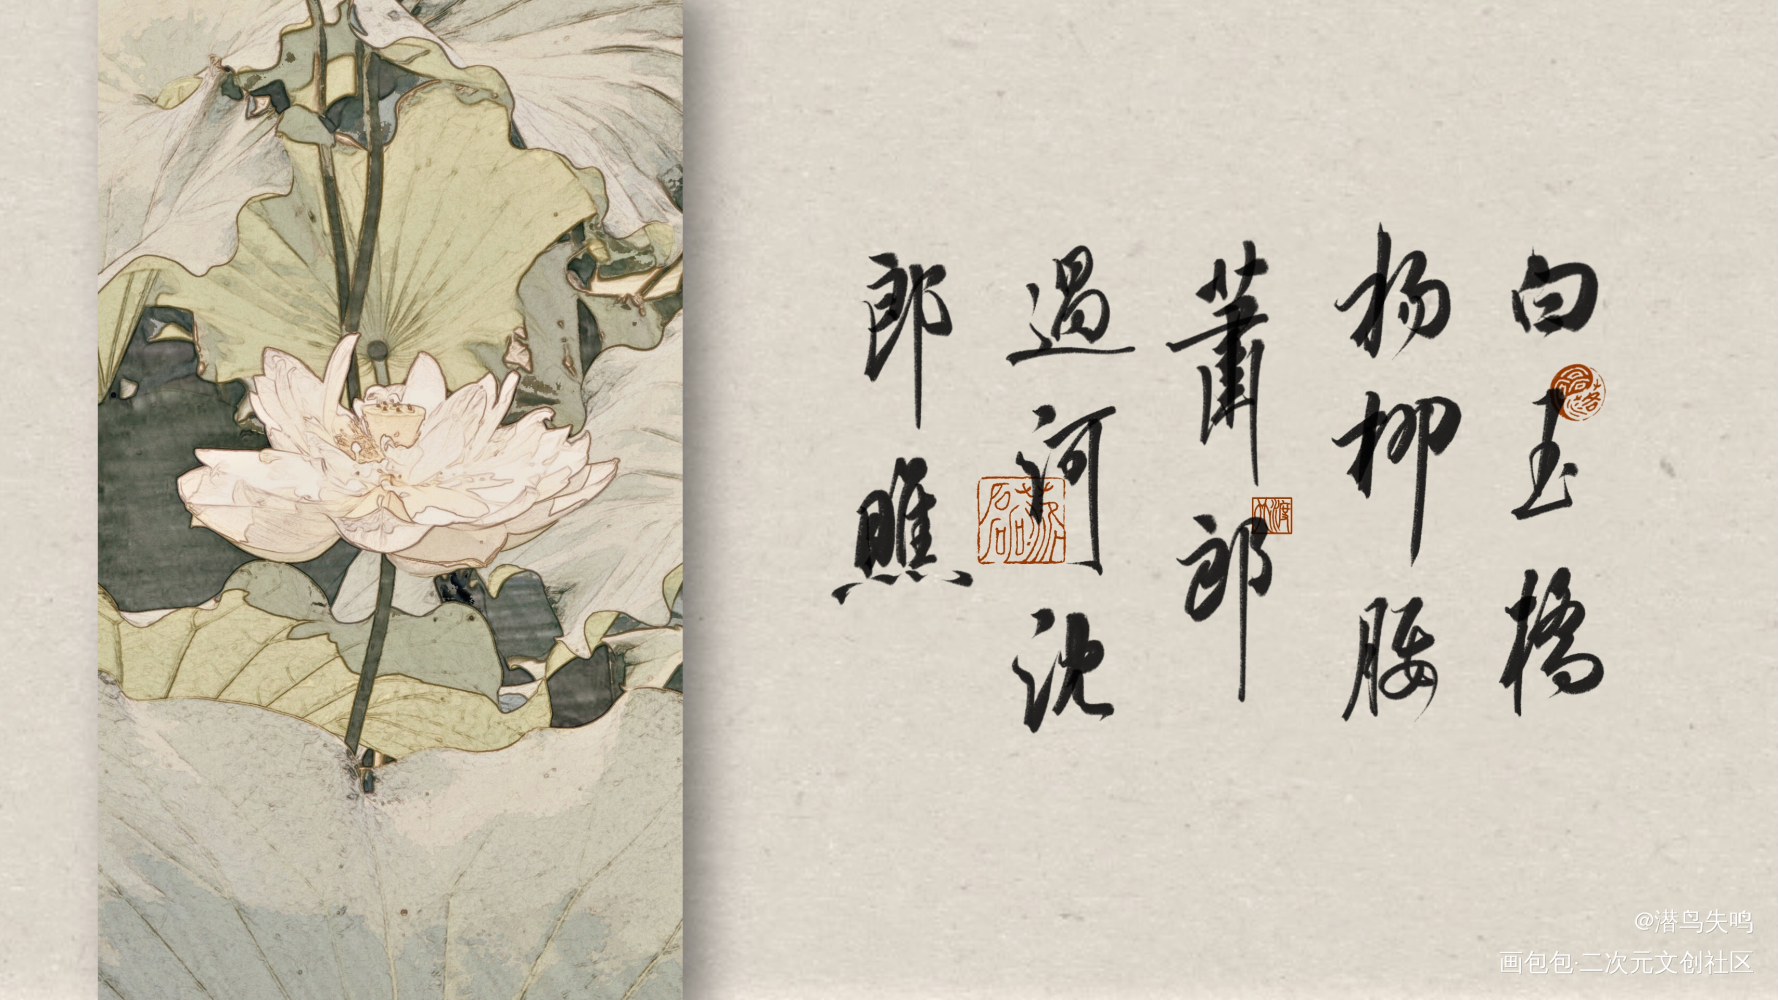 白玉橋
杨柳腰
萧郎
過河沈
郎瞧
@潜鸟失鸣
画包包·二次元文创社区